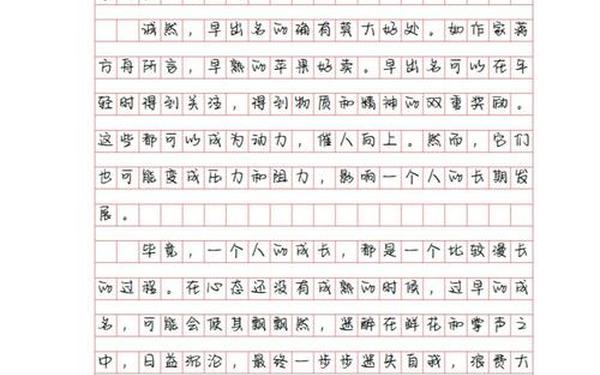 诚然，早出名的确有莫大好处。如作家蒋
方舟所言，早熟的苹果好卖。早出名可以在年
轻时得到关注，得到物质和精神的双重奖励。
这些都可以成为动力，催人向上。然而，它们
也可能变成压力和阻力，影响一个人的长期发
展。
毕竟，一个人的成长，都是一个比较漫长
的过程。在心态还没有成熟的时候，过早的成
名，可能会使其飘飘然，迷醉在鲜花和掌声之
中，日益沉沦，最终一步步迷失自我，浪费大